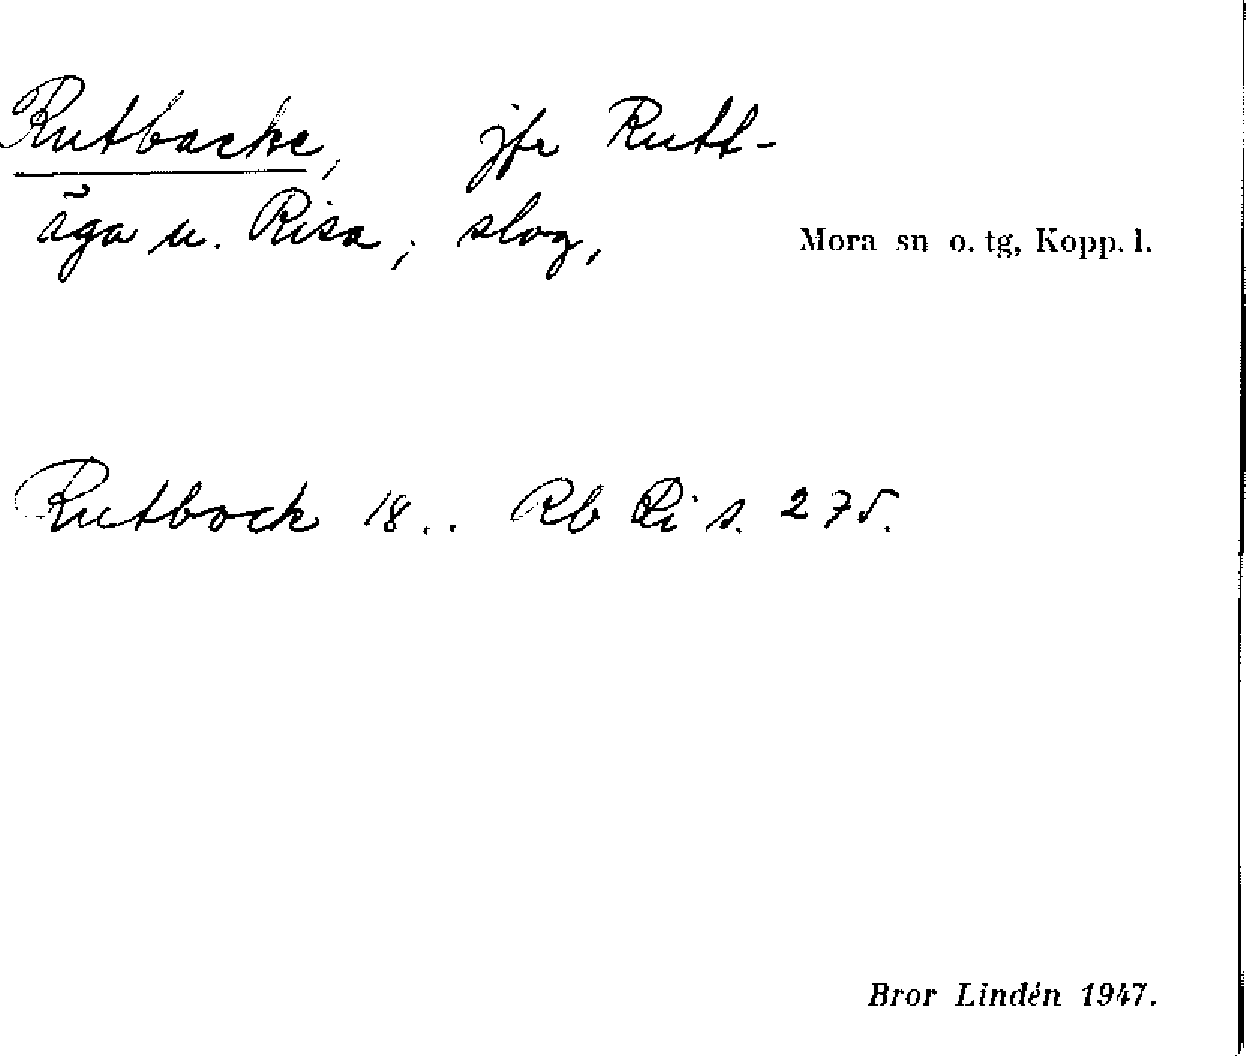 Rutbacke, jfr Rutt-
åga u. Risa; slog,
Mora sn o. tg, Kopp. l.
Rutbock 18.. Rb Ri s. 275.
Bror Lindén 1947.